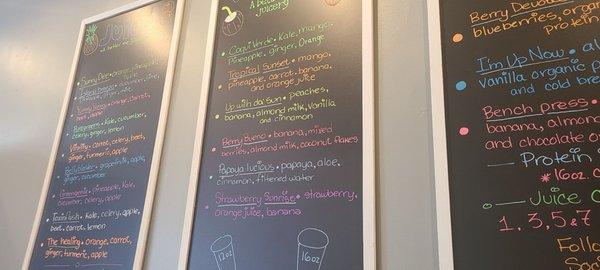 JUICE
Sunny Dee • orange, pineapple,
Island Breeze
Bunny Honey • orange, carrot,
beet, apple
kale, cucumber,
celery, ginger, lemon
Vitality • carrot, celery, beet,
ginger, turmeric, apple
grapefruit, apple,
ginger, cucumber
pineapple, kale,
cucumber, celery, apple
Toxin Flush • Kale, celery, apple,
beet, carrot, lemon
The healing • orange, carrot,
ginger, turmeric, apple
juicery
Coqui Verde • Kale, mango,
pineapple, ginger, Orange
Tropical Sunset • mango,
pineapple, carrot, banana,
and orange juice
Up with da Sun • peaches,
banana, almond milk, Vanilla
and cinnamon
Berry Bueno • banana, mixed
berries, almond milk, coconut flakes
Papaya lucious • papaya, aloe,
cinnamon, filtered water
Strawberry Sunrise • strawberry,
orange juice, banana
12oz
16oz
Berry Devot
blueberries, orga
Protein
I'm Up Now • al
vanilla organic p
and cold bre
Bench press •
banana, almond
and chocolate o
Protein S
*16oz. c
Juice C
1, 3, 5 & 7
Follo